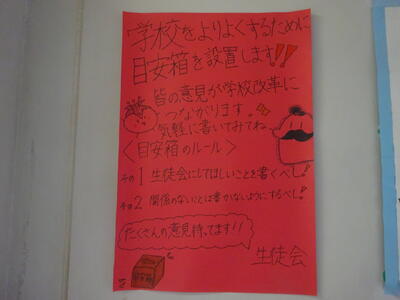 学校をよりよくするために
目安箱を設置します!!
皆の意見が学校改革に
つながります。
気軽に書いてみてね。
〈目安箱のルール〉
その1 生徒会にしてほしいことを書くべし!
その2 関係のないことは書かないようにするべし!
たくさんの意見待ってます!!
生徒会